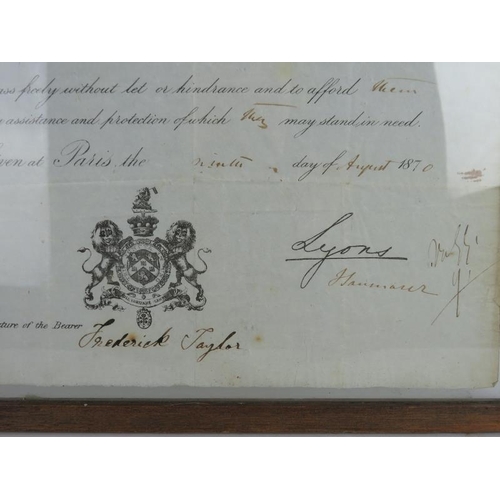 ass freely without let or hindrance and to afford them
assistance and protection of which they may stand in need.
iven at Paris, the ninth day of August 1870
Lyons
ture of the Bearer
Frederick Taylor